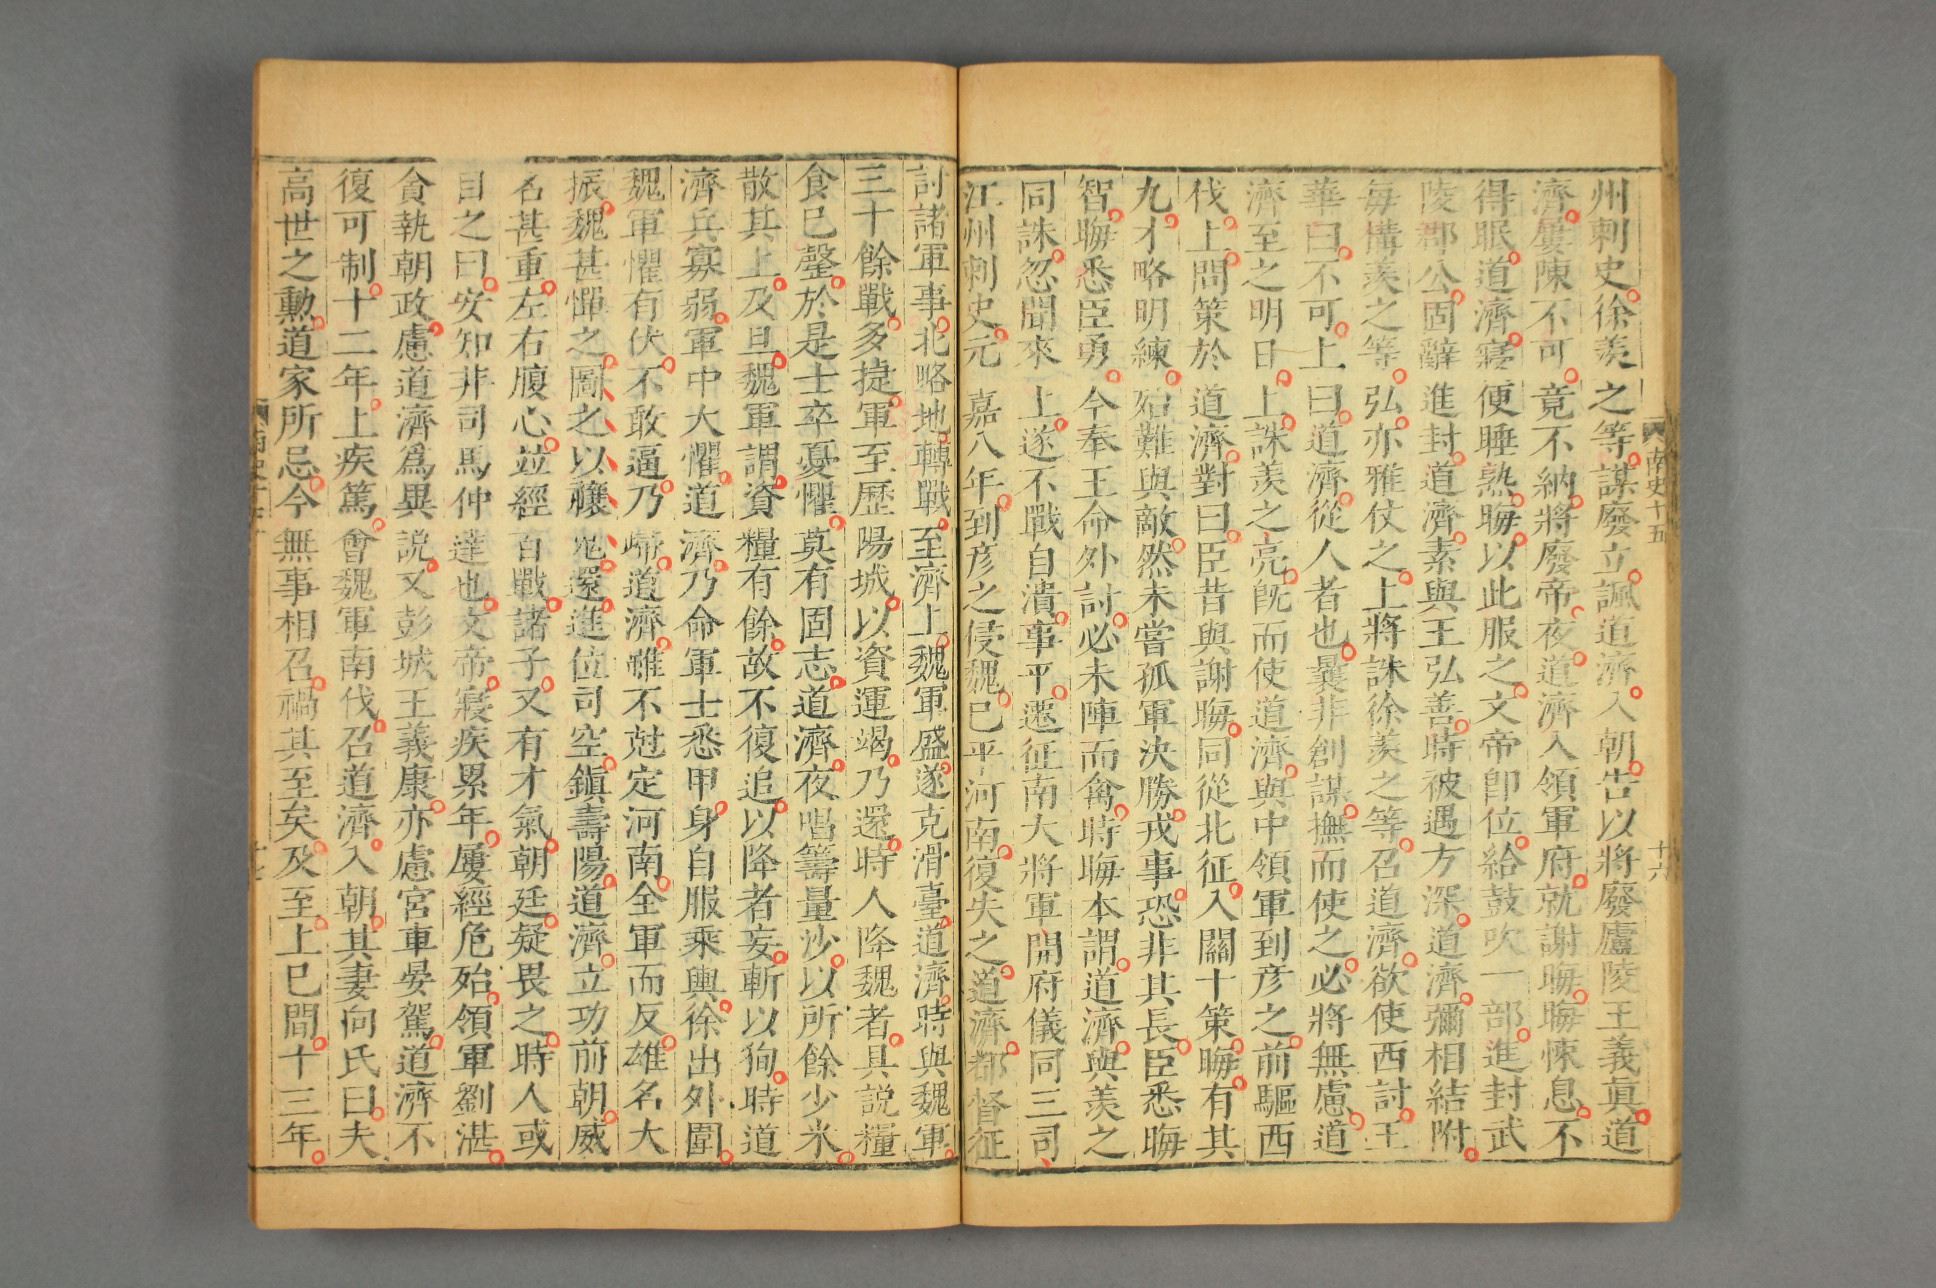 州刺史徐羨之等謀廢立諷道濟入朝告以將廢廬陵王義眞道
濟屢陳不可竟不納將廢帝夜道濟入領軍府就謝晦晦悚息不
得眠道濟寢便睡熟晦以此服之文帝卽位給鼓吹一部進封武
陵郡公固辭進封道濟素與王弘善時被遇方深道濟彌相結附
每搆羨之等弘亦雅仗之上將誅徐羨之等召道濟欲使西討王
華曰不可上曰道濟從人者也曩非創謀撫而使之必將無慮道
濟至之明日上誅羨之亮旣而使道濟與中領軍到彥之前驅西
伐上問策於道濟對曰臣昔與謝晦同從北征入關十策晦有其
九才略明練殆難與敵然未嘗孤軍決勝戎事恐非其長臣悉晦
智晦悉臣勇今奉王命外討必未陣而禽時晦本謂道濟與羨之
同誅忽聞來上遂不戰自潰事平遷征南大將軍開府儀同三司
江州刺史元嘉八年到彥之侵魏已平河南復失之道濟都督征
討諸軍事北略地轉戰至濟上魏軍盛遂克滑臺道濟時與魏軍
三十餘戰多捷軍至歷陽城以資運竭乃還時人降魏者具說糧
食已罄於是士卒憂懼莫有固志道濟夜唱籌量沙以所餘少米
散其上及旦魏軍謂資糧有餘故不復追以降者妄斬以狥時道
濟兵寡弱軍中大懼道濟乃命軍士悉甲身白服乘輿徐出外圍
魏軍懼有伏不敢逼乃歸道濟雖不尅定河南全軍而反雄名大
振魏甚憚之圖之以禳鬼還進位司空鎭壽陽道濟立功前朝威
名甚重左右腹心竝經百戰諸子又有才氣朝廷疑畏之時人或
目之曰安知非司馬仲達也文帝寢疾累年屢經危殆領軍劉湛
貪執朝政慮道濟爲異說又彭城王義康亦慮宮車晏駕道濟不
復可制十二年上疾篤會魏軍南伐召道濟入朝其妻向氏曰夫
高世之勳道家所忌今無事相召禍其至矣及至上已閒十三年
南史十五
十六